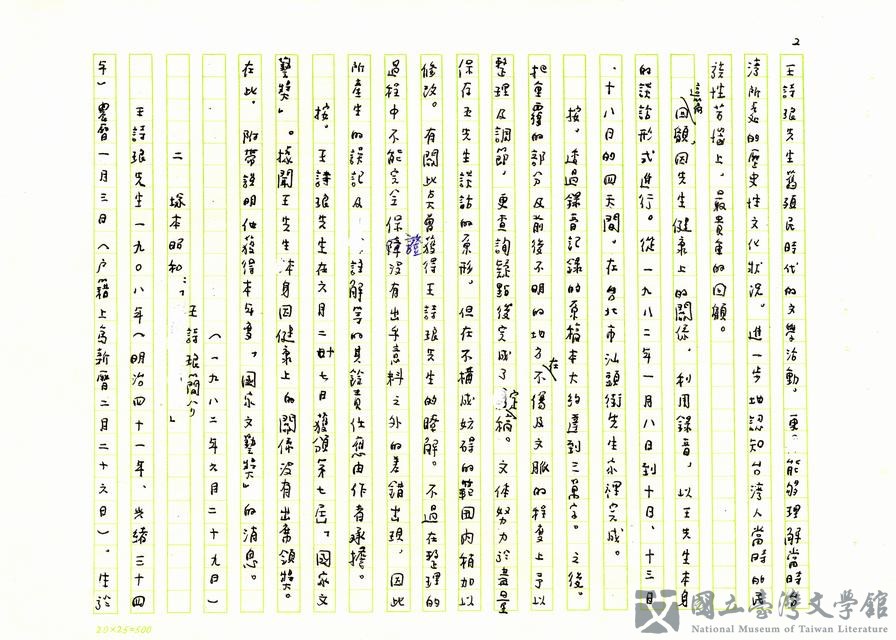 2
王詩琅先生舊殖民時代的文學活動。更能夠理解當時台
湾所處的歷史性文化狀況。進一步地認知台湾人當時的民
族性苦惱上，最貴重的回顧。
這篇回顧，因先生健康上的關係，利用錄音，以王先生本身
的談話形式進行。從一九八二年一月八日到十日、十三日
、十八日的四天間。在台北市汕頭街先生家裡完成。
按，透過錄音記錄的原稿本大約達到三萬字。之後。
把重覆的部分及前後不明的地方在不傷及文脈的程度上予以
整理及調節，更查詢疑點後完成了定稿。文体努力於盡量
保存王先生談話的原形。但在不構成妨碍的範囲内稍加以
修改。有關此点曾獲得王詩琅先生的瞭解。不過在整理的
過程中不能完全保證沒有出乎意料之外的差錯出現，因此
所產生的誤記及註解等的其餘責任應由作者承擔。
按。王詩琅先生在六月二廿七日獲頒第七屆「國家文
藝獎」。據聞王先生本身因健康上的關係沒有出席領獎。
在此，附帶說明他獲得本年度「國家文藝獎」的消息。
（一九八二年六月二十九日）
二 塚本昭和：「王詩琅簡介」
王詩琅先生一九〇八年（明治四十一年、光緒三十四
年）農曆一月三日（戶籍上為新曆二月二十六日）。生於
20×25=500
國立臺灣文學館
National Museum of Taiwan Literature